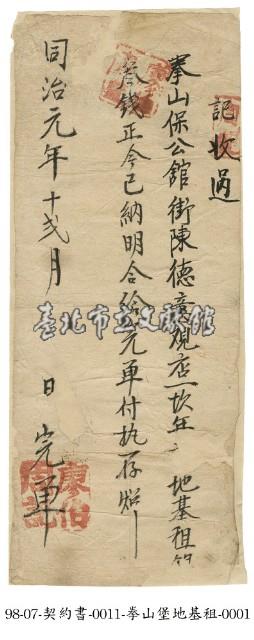 記收過
拳山保公館街陳德意現店一坎年 地基租銀
叁錢正今已納明合給完單付执存炤
同治元年十弍月 日 完單
臺北市立文獻館
廖
記
98-07-契約書-0011-拳山堡地基租-0001